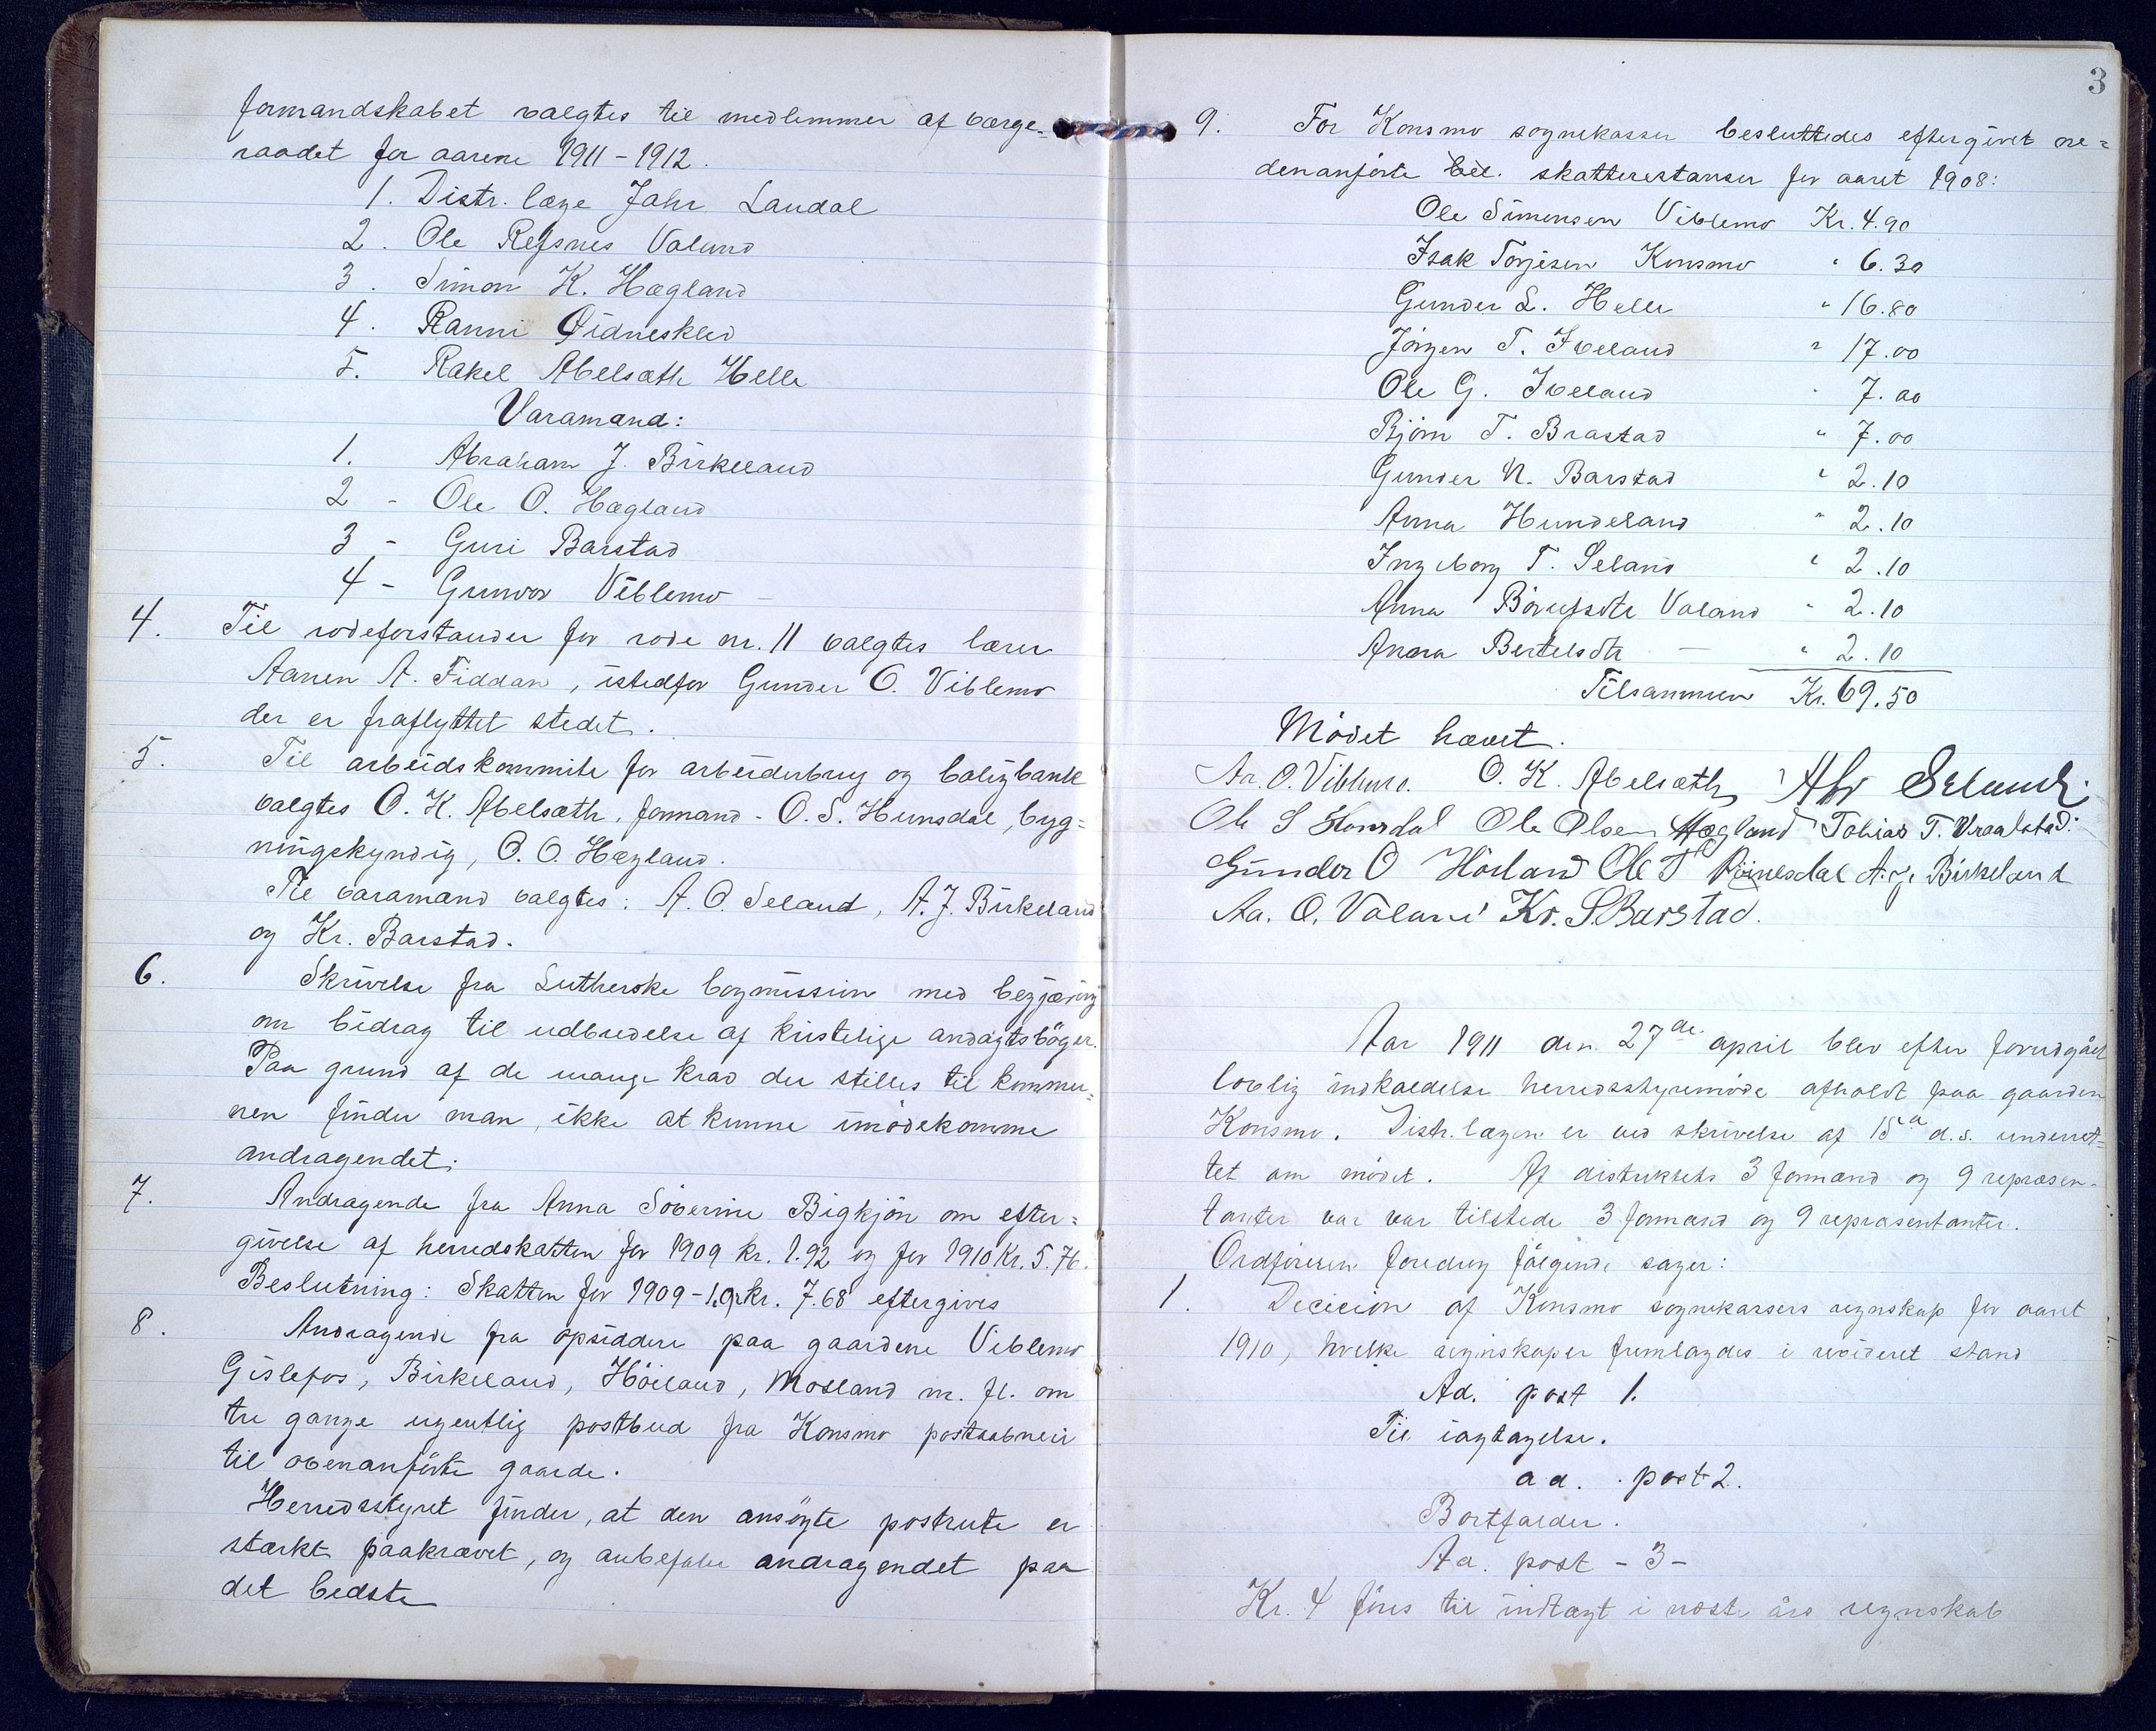 formandskabet valgtes til medlemmer af værge-
raadet for aarene 1911-1912.
1. Distr. læge Jahr Laudal
2. Ole Refsnes Valand
3. Simon K. Hægland
4. Ranni Øidnesklev
5. Rakel Abelsæth Helle
Varamænd:
1. Abraham J. Birkeland
2 - Ole O. Hægland
3 - Guri Barstad
4 - Gunvor Viblemo -
4. Til rodeforstander for rode nr. 11 valgtes lærer
Aanen A. Fiddan, istedfor Gunder O. Viblemo
der er fraflyttet stedet.
5. Til arbeidskommite for arbeiderbrug og boligbank
valgtes O. K. Abelsæth, formand - O. S. Hunsdal, byg=
ningskyndig, O. O. Hægland.
Til varamænd valgtes: A. O. Seland, A. J. Birkeland
og Kr. Barstad.
6. Skrivelse fra Lutherske bogmission med begjæring
om bidrag til udbredelse af kristelige andagtsbøger.
Paa grund af de mange krav der stilles til kommu-
nen finder man ikke at kunne imødekomme
andragendet.
7. Andragende fra Anna Söverine Bigkjön om efter=
givelse af herredskatten for 1909 kr. 1.92 og for 1910 Kr. 5.76.
Beslutning: Skatten for 1909-10, kr. 7.68 eftergives
8. Andragende fra opsiddere paa gaardene Viblemo
Gislefos, Birkeland, Höiland, Mosland m. fl. om
tre gange ugentlig postbud fra Konsmo postaabneri
til ovenanførte gaarde.
Herredsstyret finder, at den ansögte postrute er
stærkt paakrævet, og anbefaler andragendet paa
det bedste
3
9. For Konsmo sognekasser besluttedes eftergivet ne=
denanførte bel. skatterestanser for aaret 1908:
Ole Simensen Viblemo Kr. 4.90
Isak Torjesen Konsmo " 6.30
Gunder L. Helle " 16.80
Jörgen T. Iveland " 17.00
Ole G. Iveland " 7.00
Björn T. Brastad " 7.00
Gunder N. Barstad " 2.10
Anna Hundeland " 2.10
Ingeborg T. Seland " 2.10
Anna Valand " 2.10
Anna Bertelsdtr — " 2.10
Tilsammen Kr. 69.50
Mödet hævet.
Aa. O. Viblemo. O. K. Abelsæth Abr Seland.
Ole S Hunsdal Ole Olsen Hægland Tobias T. Vraalstad.
Gunder O Hörland Ole T A. J. Birkeland
Aa. O. Valand Kr. S. Barstad.
Aar 1911 den 27de april blev efter forudgået
lovlig indkaldelse herredsstyremöde afholdt paa gaarden
Konsmo. Distr. lægen er ved skrivelse af 15de d.s. underret-
tet om mödet. Af distriktets 3 formænd og 9 repræsen-
tanter var var tilstede 3 formænd og 9 repræsentanter.
Ordføreren foredrog fölgende sager:
1. Decicion af Konsmo sognekassers regnskap for aaret
1910, hvilke regnskaper fremlagdes i revideret stand
Ad. post 1.
Til iagtagelse.
ad. post 2.
Bortfalder.
Ad. post - 3 -
Kr. 4 föres til indtægt i næste års regnskab